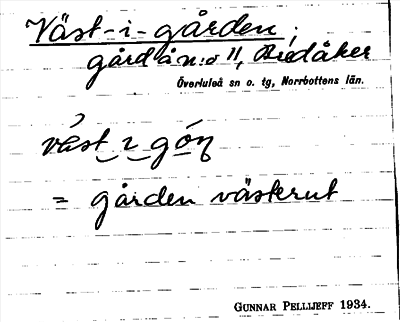 Väst-i-gården,
gård å n:o 11, Bredåker
Överluleå sn o. tg, Norrbottens län.
väst i gón
= gården västerut
GUNNAR PELLIJEFF 1934.